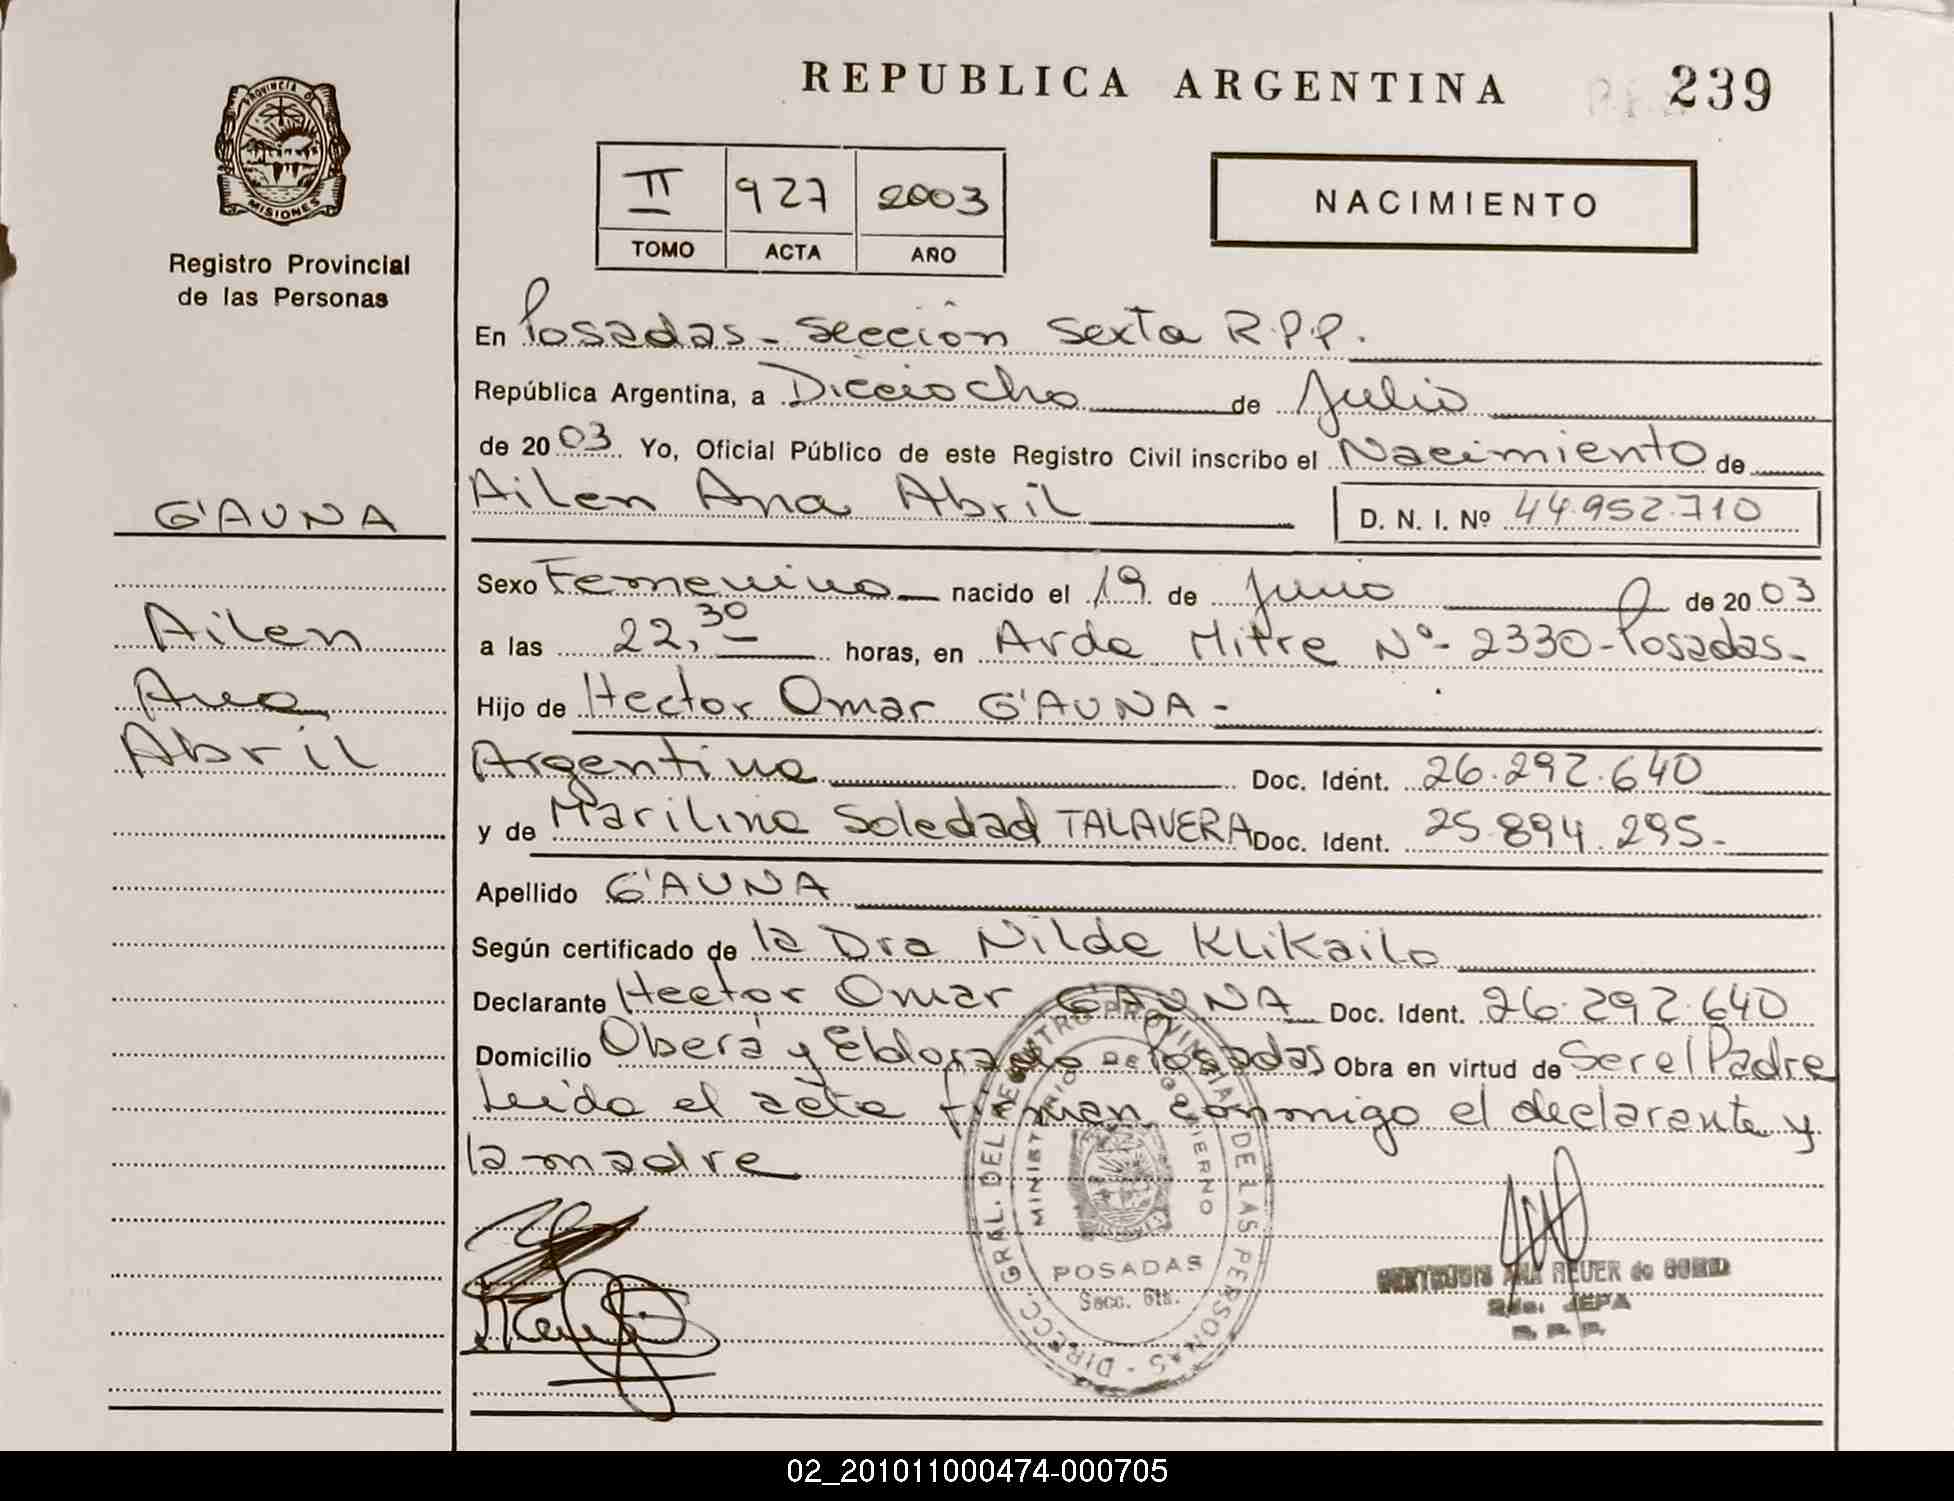 REPUBLICA ARGENTINA
239
PROVINCIA D
MISIONES
Registro Provincial
de las Personas
II 927 2003
TOMO ACTA AÑO
NACIMIENTO
En Posadas - Sección Sexta R.P.P.
República Argentina, a Dieciocho de Julio
de 2003 Yo, Oficial Público de este Registro Civil inscribo el Nacimiento de
Ailen Ana Abril D. N. I. Nº 44.952.710
G'AUNA
Ailen
Ana
Abril
Sexo Femenino nacido el 19 de Junio de 2003
a las 22,30 horas, en Avda Mitre Nº - 2330 - Posadas -
Hijo de Hector Omar G'AUNA -
Argentina Doc. Ident. 26.292.640
y de Marilina Soledad TALAVERA Doc. Ident. 25.894.295 -
Apellido G'AUNA
Según certificado de la Dra Nilda Klikailo
Declarante Hector Omar G'AUNA Doc. Ident. 26.292.640
Domicilio Oberá y Eldorado - Posadas Obra en virtud de Ser el Padre
Leida el acta firman conmigo el declarante y
la madre
DIRECC. GRAL. DEL REGISTRO PROVINCIAL DE LAS PERSONAS
MINISTERIO DE GOBIERNO
POSADAS
Secc. 6ta.
ANA REUER de
JEFA
R. P. P.
02_201011000474-000705